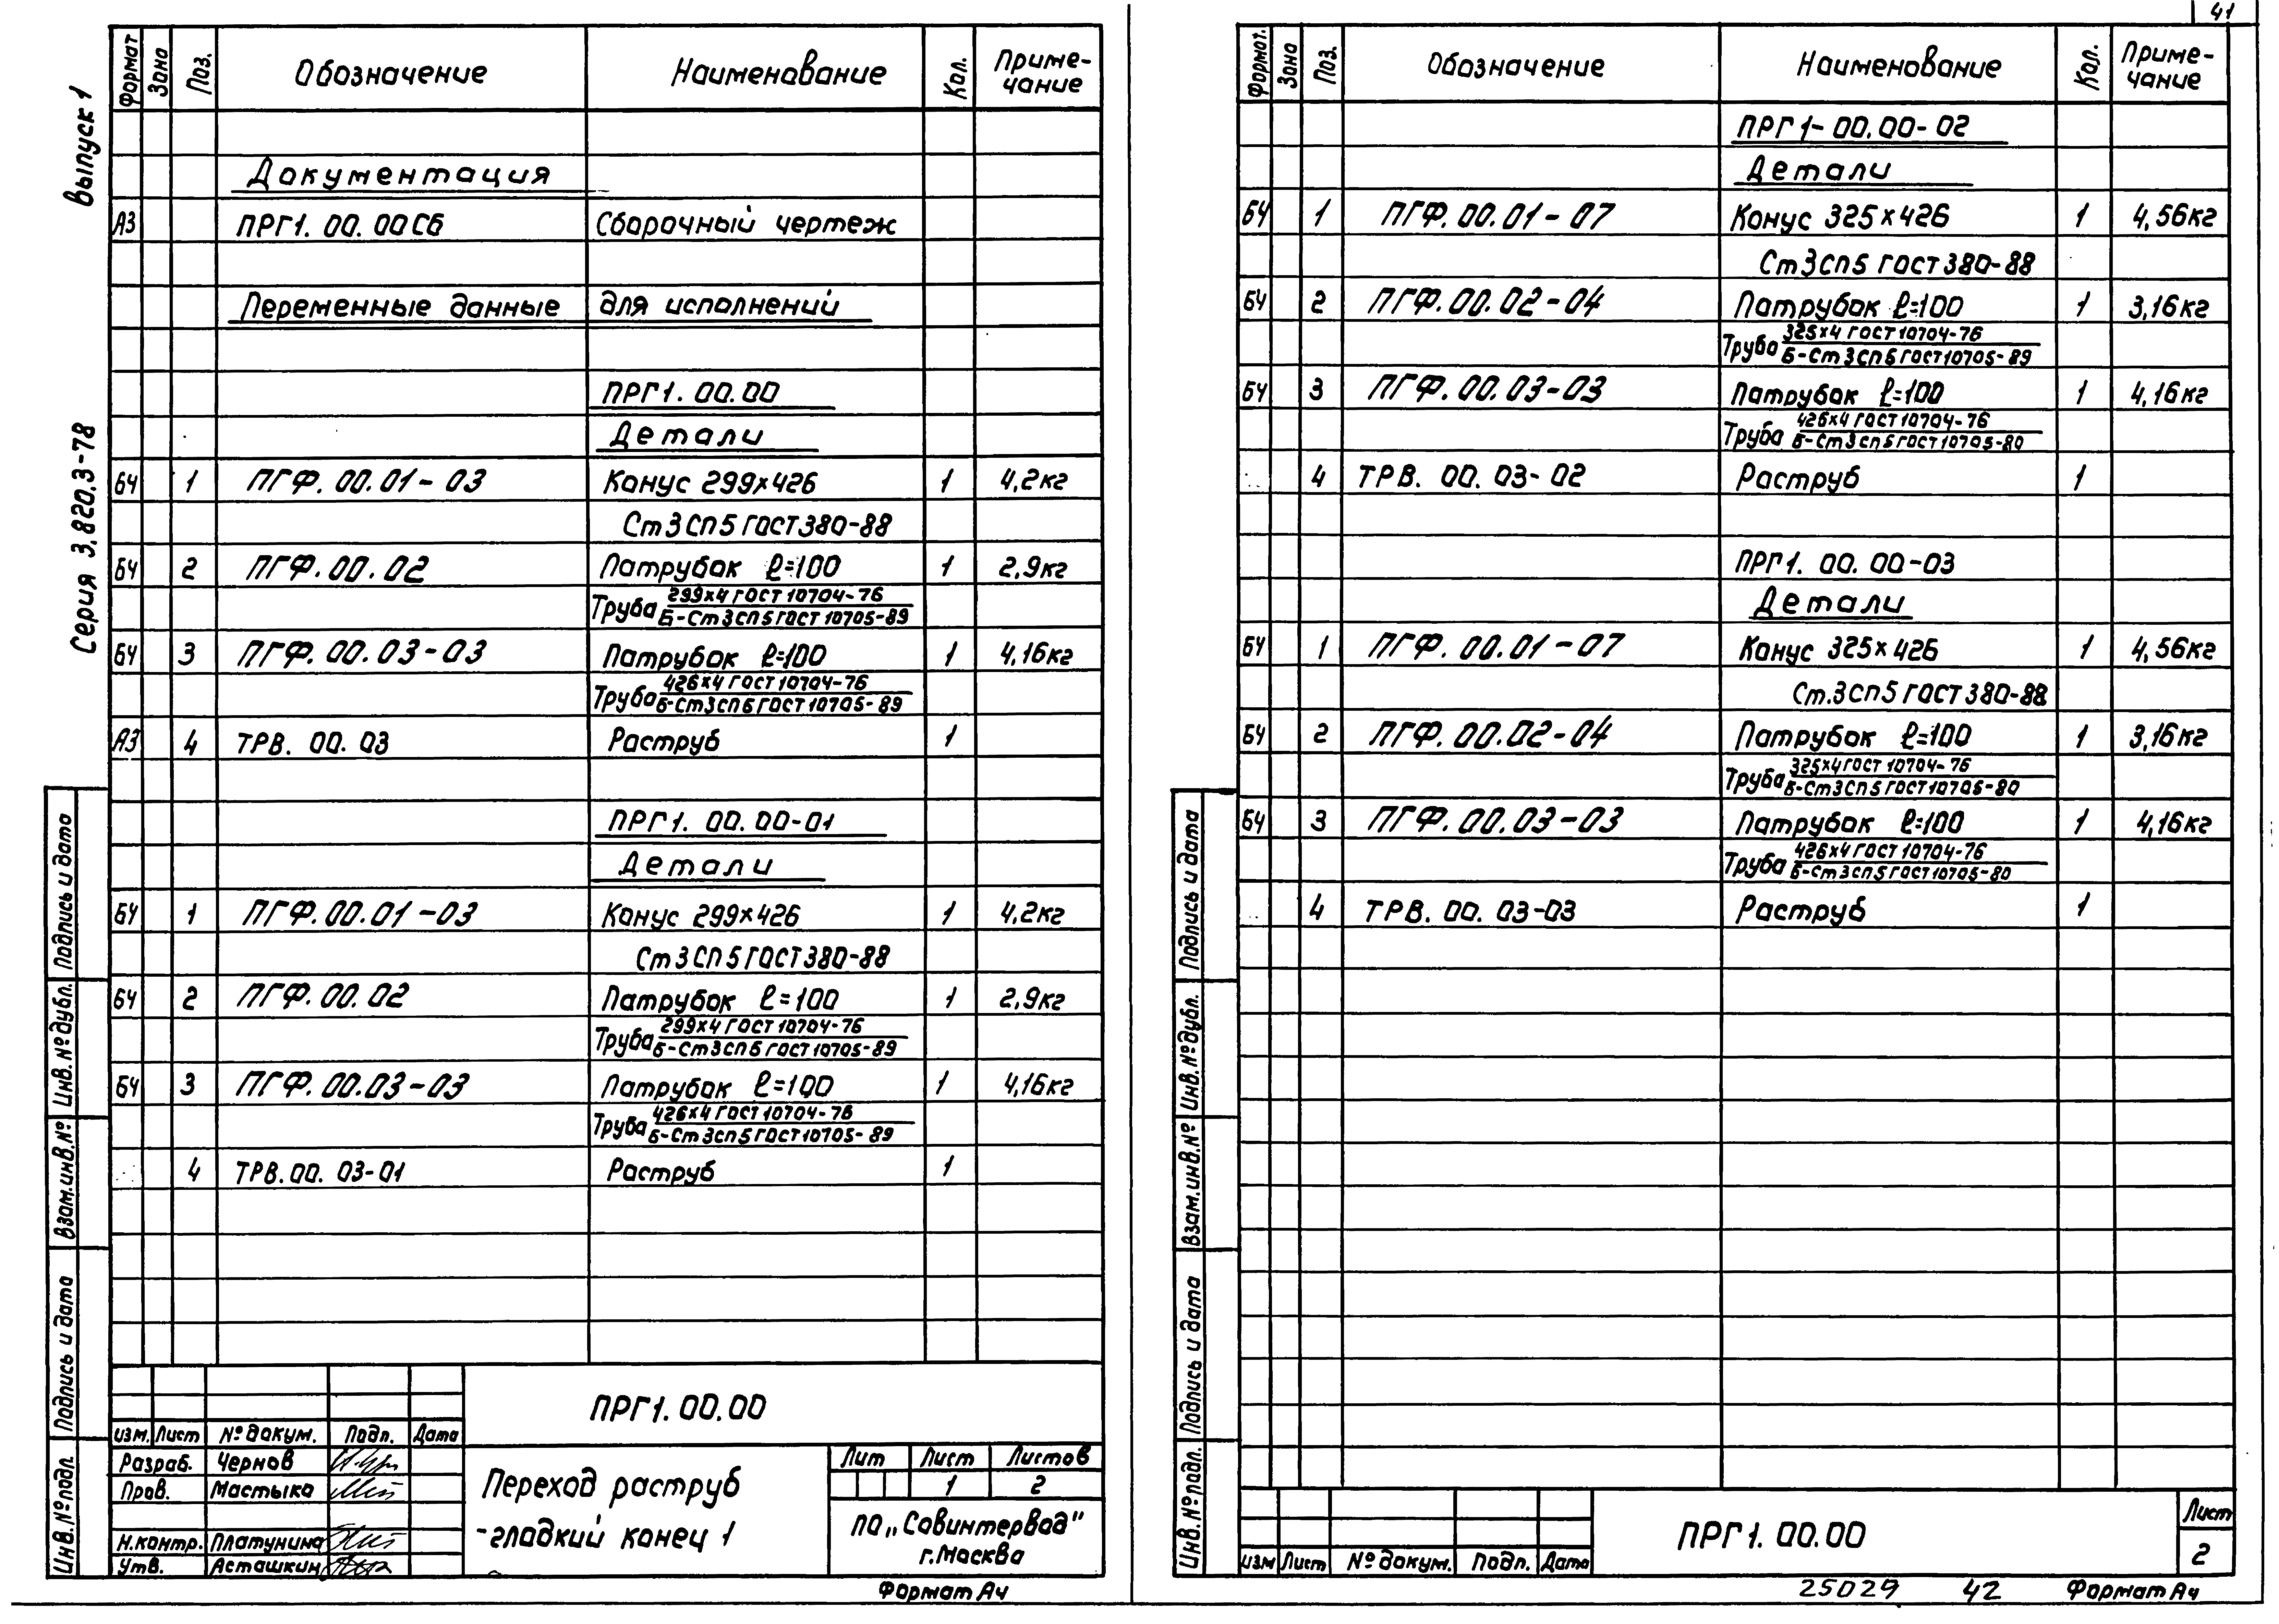 Выпуск 1
Серия 3.820.3-78
Формат Зона Поз. Обозначение Наименование Кол. Приме-чание
Документация
А3 ПРГ1.00.00СБ Сборочный чертеж
Переменные данные для исполнений
ПРГ1.00.00
Детали
БЧ 1 ПГФ.00.01-03 Конус 299×426 1 4,2кг
Ст3СП5 ГОСТ380-88
БЧ 2 ПГФ.00.02 Патрубок ℓ=100 1 2,9кг
Труба 299×4 ГОСТ 10704-76
Б-Ст3сп5 ГОСТ 10705-89
БЧ 3 ПГФ.00.03-03 Патрубок ℓ=100 1 4,16кг
Труба 426×4 ГОСТ 10704-76
Б-Ст3сп5 ГОСТ 10705-89
А3 4 ТРВ.00.03 Раструб 1
ПРГ1.00.00-01
Детали
БЧ 1 ПГФ.00.01-03 Конус 299×426 1 4,2кг
Ст3СП5 ГОСТ380-88
БЧ 2 ПГФ.00.02 Патрубок ℓ=100 1 2,9кг
Труба 299×4 ГОСТ 10704-76
Б-Ст3сп5 ГОСТ 10705-89
БЧ 3 ПГФ.00.03-03 Патрубок ℓ=100 1 4,16кг
Труба 426×4 ГОСТ 10704-76
Б-Ст3сп5 ГОСТ 10705-89
4 ТРВ.00.03-01 Раструб 1
Подпись и дата
Инв.№дубл.
Взам.инв.№
Подпись и дата
Инв.№подл.
ПРГ1.00.00
изм. Лист №докум. Подп. Дата
Разраб. Чернов
Пров. Мастыко
Н.контр. Платунина
Утв. Асташкин
Переход раструб
-гладкий конец 1
Лит Лист Листов
1 2
ПО„Совинтервод"
г.Москва
Формат А4
41
Формат. Зона Поз. Обозначение Наименование Кол. Приме-чание
ПРГ1-00.00-02
Детали
БЧ 1 ПГФ.00.01-07 Конус 325×426 1 4,56кг
Ст3СП5 ГОСТ380-88
БЧ 2 ПГФ.00.02-04 Патрубок ℓ=100 1 3,16кг
Труба 325×4 ГОСТ 10704-76
Б-Ст3сп5 ГОСТ10705-89
БЧ 3 ПГФ.00.03-03 Патрубок ℓ=100 1 4,16кг
Труба 426×4 ГОСТ 10704-76
Б-Ст3сп5 ГОСТ10705-80
4 ТРВ.00.03-02 Раструб 1
ПРГ1.00.00-03
Детали
БЧ 1 ПГФ.00.01-07 Конус 325×426 1 4,56кг
Ст.3сп5 ГОСТ380-88
БЧ 2 ПГФ.00.02-04 Патрубок ℓ=100 1 3,16кг
Труба 325×4 ГОСТ 10704-76
Б-Ст3сп5 ГОСТ10705-80
БЧ 3 ПГФ.00.03-03 Патрубок ℓ=100 1 4,16кг
Труба 426×4 ГОСТ 10704-76
Б-Ст3сп5 ГОСТ10705-80
4 ТРВ.00.03-03 Раструб 1
Подпись и дата
Инв.№дубл.
Взам.инв.№
Подпись и дата
Инв.№подл.
изм Лист №докум. Подп. Дата
ПРГ1.00.00
Лист
2
25029 42 Формат А4